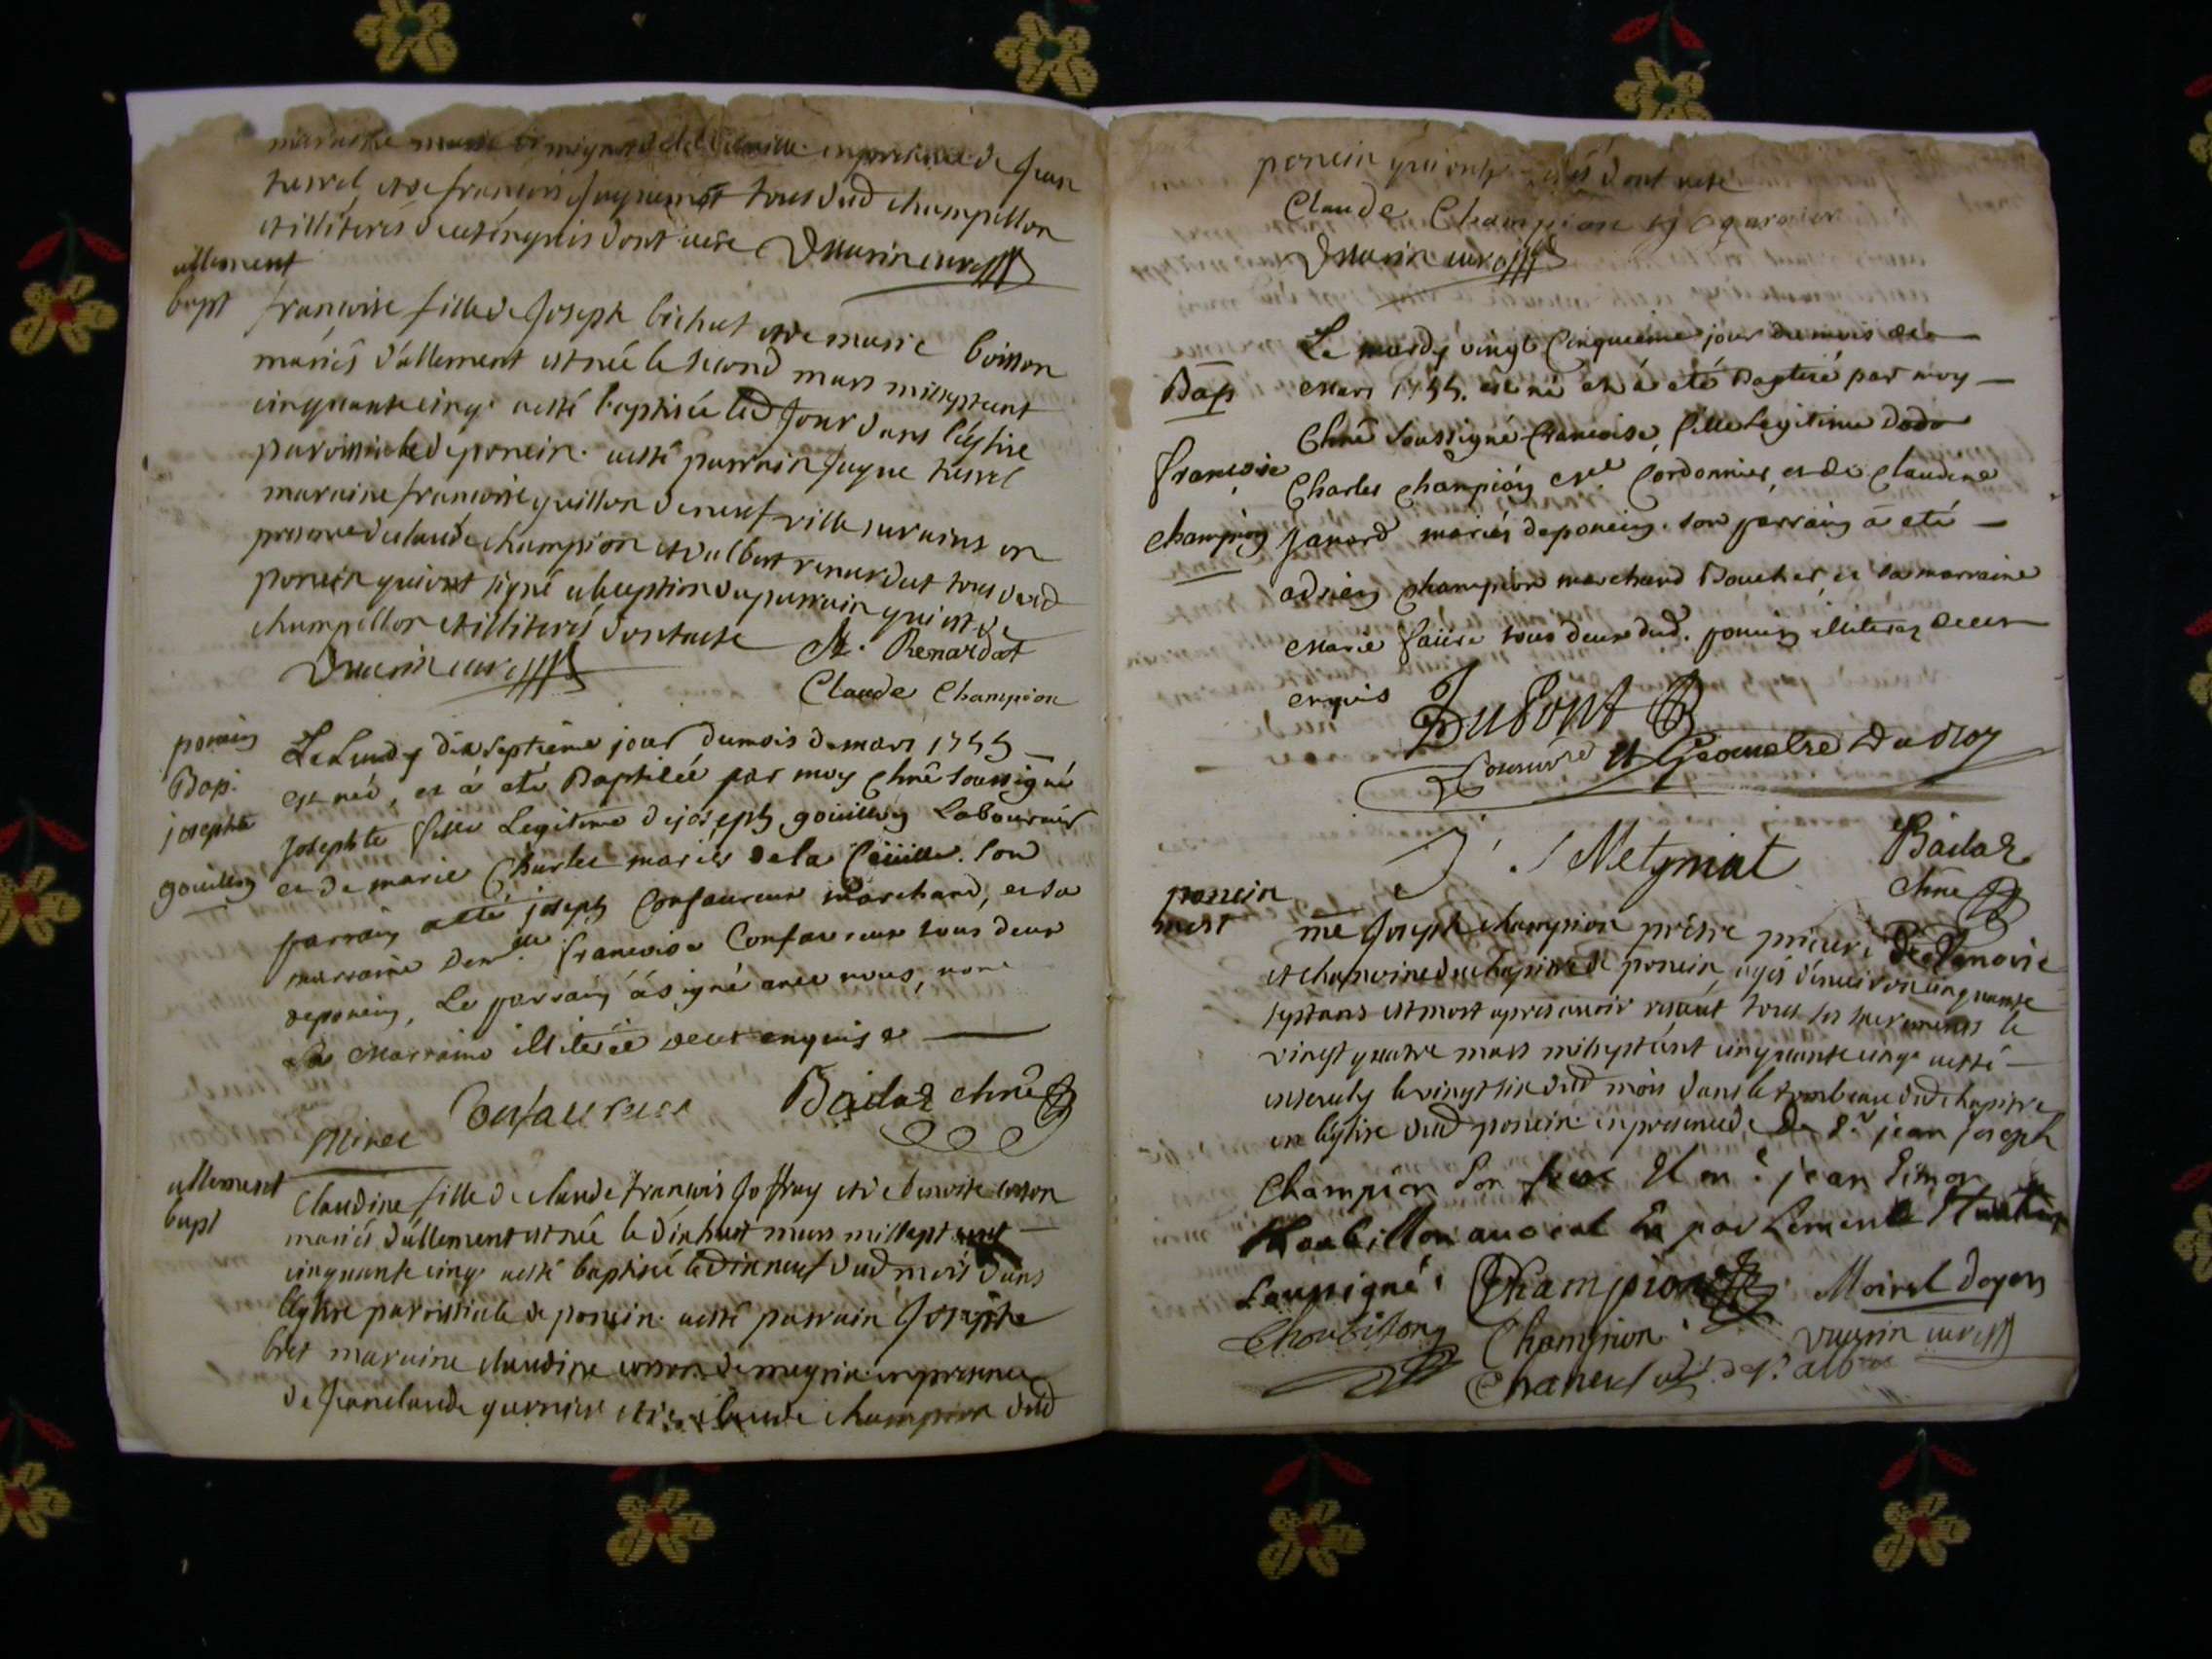 maraine marie en presence de Jean
tierrel et de francois Juynement tous dud champillon
et illiterés de ce enquis dont acte Vuarin curé
allement
bapt francoise fille de Joseph bichat et de marie boisson
mariés d'allement est née le second mars mil sept cent
cinquante cinq a esté baptisée led Jour dans l'église
paroissiale de poncin a esté parrain Jaque tierrel
maraine francoise guillon de neufville sur ains en
presence de claude champion et d'albert renardat tous dud
poncin qui ont signé a l'exeption du parrain qui est de
champillon et illiterés dont acte A. Renardat
Vuarin curé Claude Champion
poncin Le Lundy dix septieme jour du mois de mars 1755
Bap. est née, et à eté Baptisée par moy Chne soussigné
josephte josephte fille Legitime de joseph gouillon Laboureur
gouillon et de marie Charlee mariés de la Cüeille. Son
parrain a eté joseph Confavreux Marchand, et sa
marraine Demlle francoise Confavreux tous deux
de poncin, Le parrain à signé avec nous, non
La Marraine illiterée de ce enquise
Confavreux Badaz chne
allement
bapt Claudine fille de claude francois Joffray et de benoite corron
mariés d'allement est née le dix huit mars mil sept cent
cinquante cinq a esté baptisée le dix neuf dud mois dans
l'église parroissiale de poncin a esté parrain Josephte
bret maraine claudine corron de meyria en presence
de Jean claude garnier et de claude champion dud
poncin qui ont signés dont acte
Claude Champion garnier
Vuarin curé
Le mardy vingt Cinquieme jour du mois de
Bap Mars 1755. est né et à eté Baptisé par moy
Chne soussigné francoise, fille Legitime de
francoise Charles champion Me Cordonnier, et de Claudine
champion panard mariés de poncin. Son parrain à eté
adrien champion marchand Boucher et sa marraine
Marie faivre tous deux dud. poncin illiterez de ce
enquis DuPont
Commre et Géometre Du Roy
J. Metyniat Badaz
chne
poncin
mort me Joseph champion prêtre prieur De
et chanoine du chapitre de poncin, agés d'environ cinquante
sept ans est mort apres avoir reseut tous ses sacrements le
vingt quatre mars mil sept cent cinquante cinq a esté
enseuely le vingt six dud mois dans le tombeau dud chapitre
en l'église dud poncin en presence de De Sr jean Joseph
Champion Son frere Et me jean Simon
Choubillon avocat En parlement
Soussigné. Champion Moirel doyen
Choubillon Champion Vuarin curé